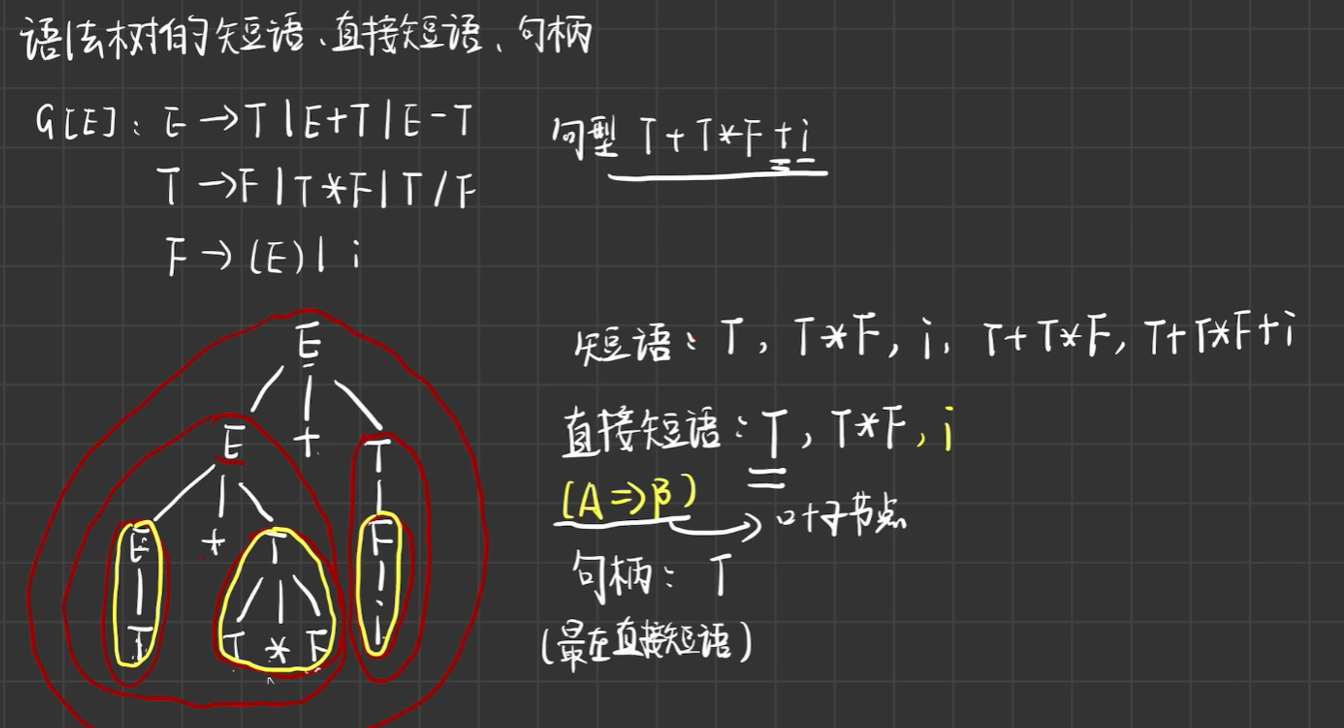 语法树的短语、直接短语、句柄
G[E]: E → T | E+T | E-T
T → F | T*F | T/F
F → (E) | i
句型 T+T*F+i
E
E + T
E + T F
T T * F i
短语: T, T*F, i, T+T*F, T+T*F+i
直接短语: T, T*F, i
(A => β) 子节点
句柄: T
(最左直接短语)